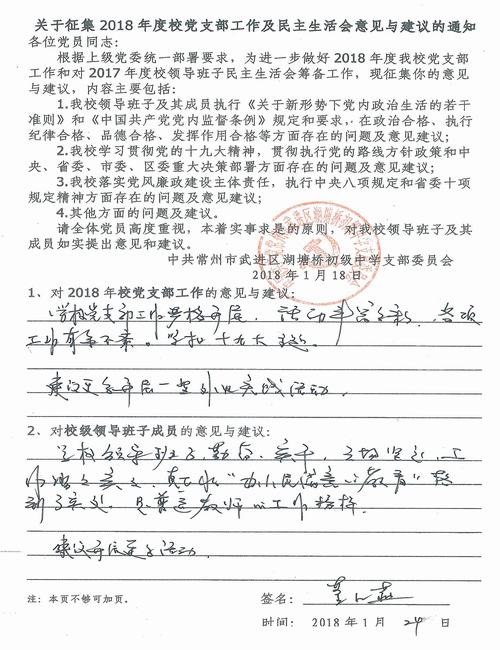 关于征集 2018 年度校党支部工作及民主生活会意见与建议的通知
各位党员同志:
根据上级党委统一部署要求，为进一步做好 2018 年度我校党支部
工作和对 2017 年度校领导班子民主生活会筹备工作，现征集你的意见
与建议，内容主要包括:
1.我校领导班子及其成员执行《关于新形势下党内政治生活的若干
准则》和《中国共产党党内监督条例》规定和要求，在政治合格、执行
纪律合格、品德合格、发挥作用合格等方面存在的问题及意见建议;
2.我校学习贯彻党的十九大精神，贯彻执行党的路线方针政策和中
央、省委、市委、区委重大决策部署方面存在的问题及意见建议;
3.我校落实党风廉政建设主体责任，执行中央八项规定和省委十项
规定精神方面存在的问题及意见建议;
4.其他方面的问题及建议。
请全体党员高度重视，本着实事求是的原则，对我校领导班子及其
成员如实提出意见和建议。
中共常州市武进区湖塘桥初级中学支部委员会
2018 年 1 月 18 日
1、对 2018 年校党支部工作的意见与建议:
学校党支部工作严格开展，活动丰富多彩，各项
工作有条不紊。学习十九大
建议更多开展一些 实践活动
2、对校级领导班子成员的意见与建议:
学校领导班子勤奋、实干，立场坚定，工
作 "办人民满意的教育"
到了实处，且 教师的工作
建议 活动
注: 本页不够可加页。
签名:
时间: 2018 年 1 月 24 日